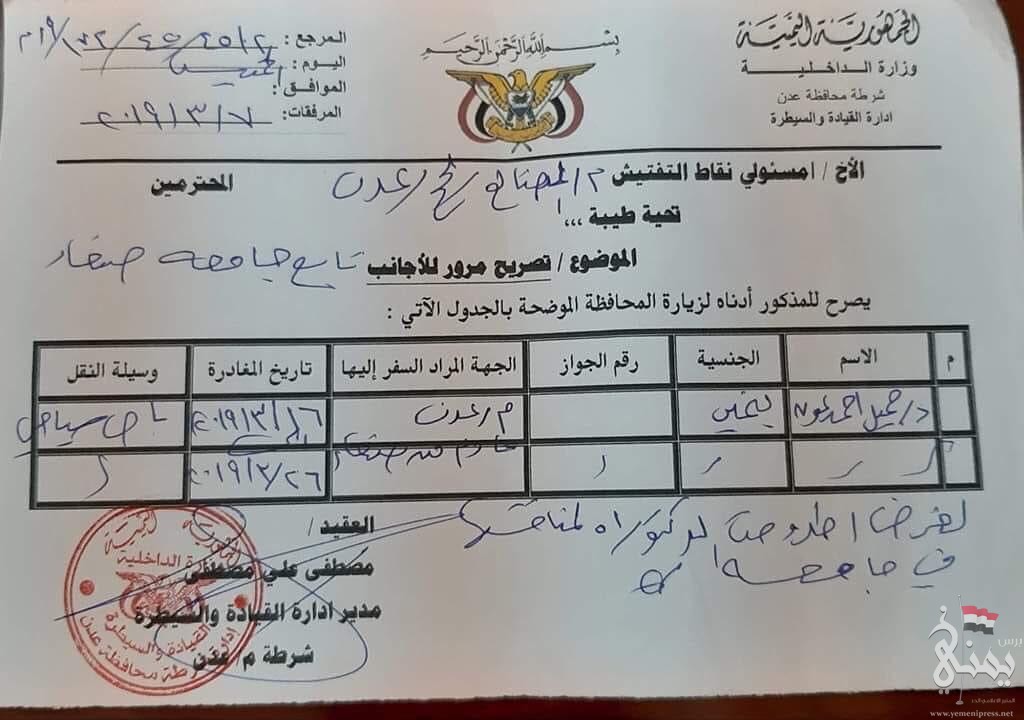 الجمهورية اليمنية
وزارة الداخلية
شرطة محافظة عدن
ادارة القيادة والسيطرة
بسم الله الرحمن الرحيم
المرجع :
اليوم : الخميس
الموافق :
المرفقات: ٢٠١٩/٣/٧
الأخ / امسئولي نقاط التفتيش م/عدن المحترمين
تحية طيبة ,,,
الموضوع / تصريح مرور للأجانب تابع جامعة صنعاء
يصرح للمذكور أدناه لزيارة المحافظة الموضحة بالجدول الآتي :
م الاسم الجنسية رقم الجواز الجهة المراد السفر إليها تاريخ المغادرة وسيلة النقل
د/جميل احمد يمني م/عدن ٢٠١٩/٣/١٦ باص سياحي
قادم من صنعاء ٢٠١٩/٣/٢٦
لغرض اطروحة الدكتوراه لمناقشتها
في جامعة
العقيد /
مصطفى علي مصطفى
مدير ادارة القيادة والسيطرة
شرطة م/عدن
وزارة الداخلية
ادارة القيادة والسيطرة
شرطة محافظة عدن
يمني برس
www.yemenipress.net